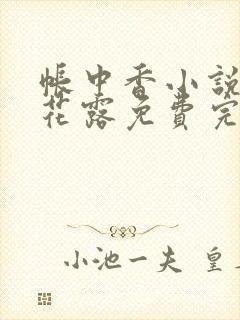 帳中香小說
花露免費完
小池一夫 皇